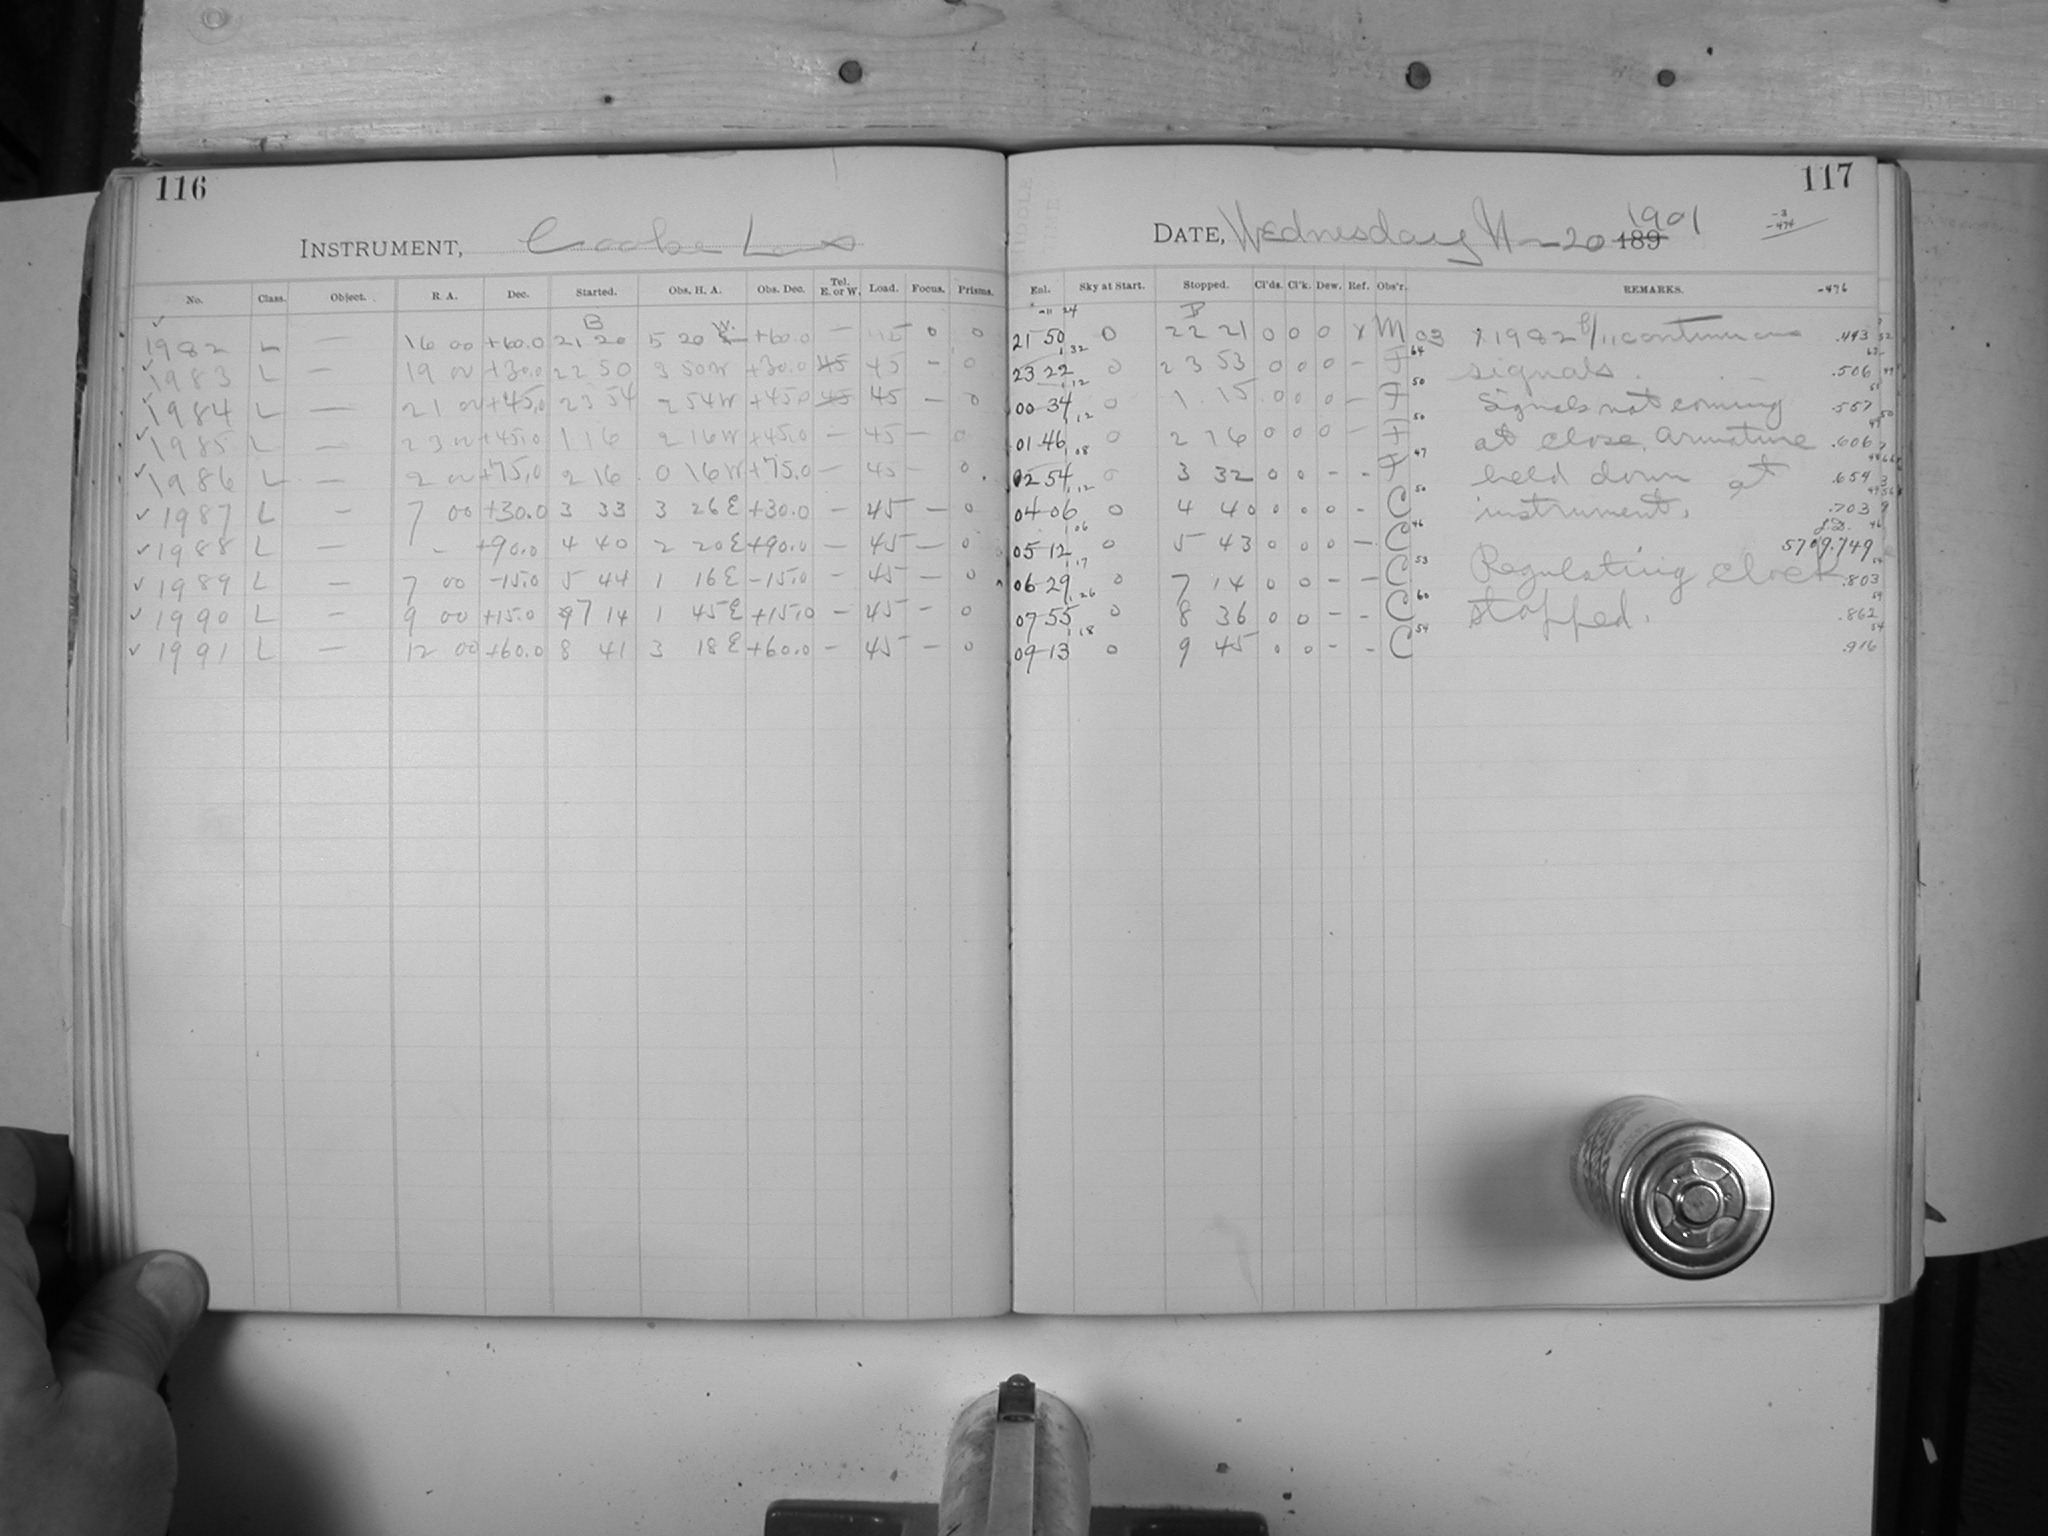 116
INSTRUMENT, Cooke Lens
No. Class. Object. R. A. Dec. Started. Obs. H. A. Obs. Dec. Tel. E. or W. Load. Focus. Prisms.
B W.
1982 L — 16 00 +60.0 21 20 5 20 +60.0 — 45 0 0
1983 L — 19 00 +30.0 22 50 3 50W +30.0 45 45 — 0
1984 L — 21 00 +45.0 23 54 2 54W +45.0 45 45 — 0
1985 L — 23 00 +45.0 1 16 2 16W +45.0 — 45 — 0
1986 L — 2 00 +75.0 2 16 0 16W +75.0 — 45 — 0
1987 L — 7 00 +30.0 3 33 3 26E +30.0 — 45 — 0
1988 L — – +90.0 4 40 2 20E +90.0 — 45 — 0
1989 L — 7 00 -15.0 5 44 1 16E -15.0 — 45 — 0
1990 L — 9 00 +15.0 7 14 1 45E +15.0 — 45 — 0
1991 L — 12 00 +60.0 8 41 3 18E +60.0 — 45 — 0
117
DATE, Wednesday 20 189 1901
-3
-474
Enl. Sky at Start. Stopped. Cl'ds. Cl'k. Dew. Ref. Obs'r. REMARKS. -476
-11 24
21 50 0 22 21 0 0 0 x M 03 x 1982 continuous .443
1 32
23 22 0 23 53 0 0 0 – F 64 signals. .506
1 12
00 34 0 1 15 0 0 0 – F 50 Signals not coming .557
1 12
01 46 0 2 16 0 0 0 – F 50 at close. Armature .606
1 08
02 54 0 3 32 0 0 – – F 47 held down at .654
1 12
04 06 0 4 40 0 0 0 – C 50 instrument. .703
1 06
05 12 0 5 43 0 0 0 – C 46 J.D. 5709.749
1 17
06 29 0 7 14 0 0 – – C 53 Regulating clock .803
1 26
07 55 0 8 36 0 0 – – C 60 stopped. .862
1 18
09 13 0 9 45 0 0 – – C 54 .916